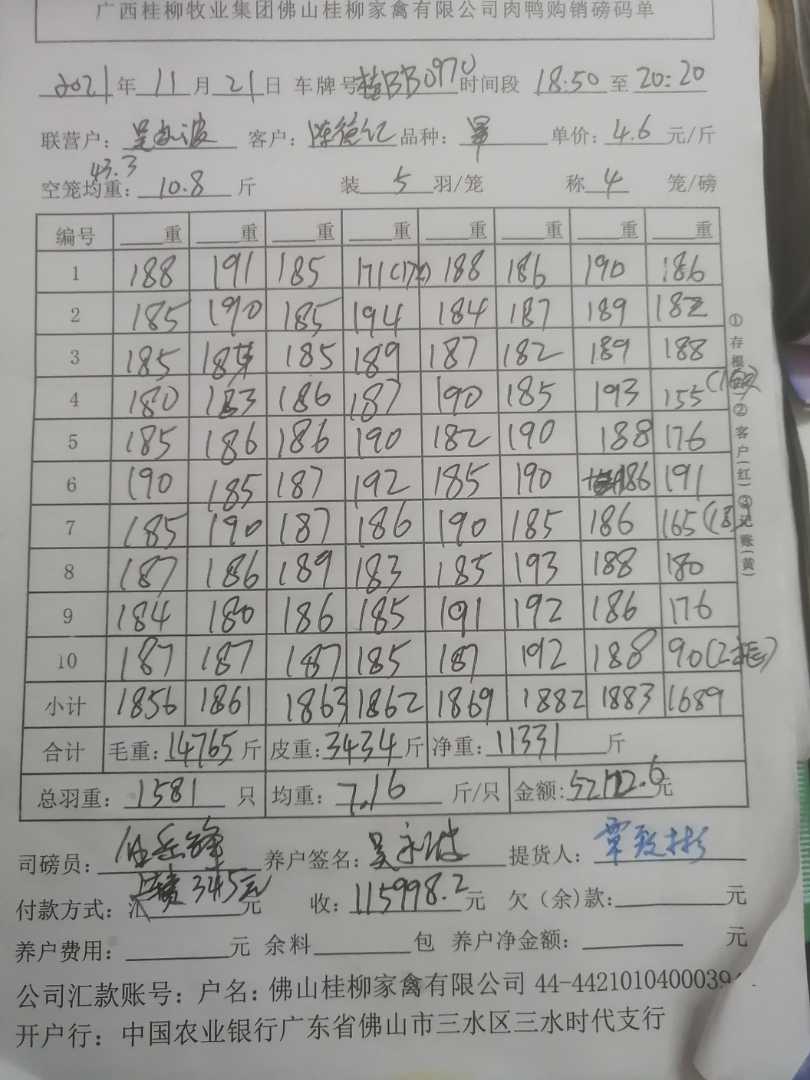 广西桂柳牧业集团佛山桂柳家禽有限公司肉鸭购销磅码单
2021年11月21日 车牌号桂BB0970时间段 18:50至20:20
联营户: 客户: 陈德亿 品种: 单价: 4.6元/斤
43.3
空笼均重: 10.8 斤 装 5 羽/笼 称 4 笼/磅
编号 重 重 重 重 重 重 重 重
1 188 191 185 171(17只) 188 186 190 186
2 185 190 185 194 184 187 189 182
3 185 185 189 187 182 189 188
4 180 183 186 187 190 185 193 155
5 185 186 186 190 182 190 188 176
6 190 185 187 192 185 190 186 191
7 185 190 187 186 190 185 186 165(18只
8 187 186 189 183 185 193 188 180
9 184 180 186 185 191 192 186 176
10 187 187 187 185 187 192 188 90(2框)
小计 1856 1861 1863 1862 1869 1882 1883 1689
合计 毛重: 14765斤 皮重: 3434斤 净重: 11331斤
总羽重: 1581 只 均重: 7.16 斤/只 金额: 元
司磅员: 养户签名: 吴 提货人: 覃致彬
345元
付款方式: 汇 元 收: 115998.2元 欠(余)款: 元
养户费用: 元 余料 包 养户净金额: 元
公司汇款账号: 户名: 佛山桂柳家禽有限公司 44-442101040003
开户行: 中国农业银行广东省佛山市三水区三水时代支行
①存根 ②客户(红) ③记账(黄)